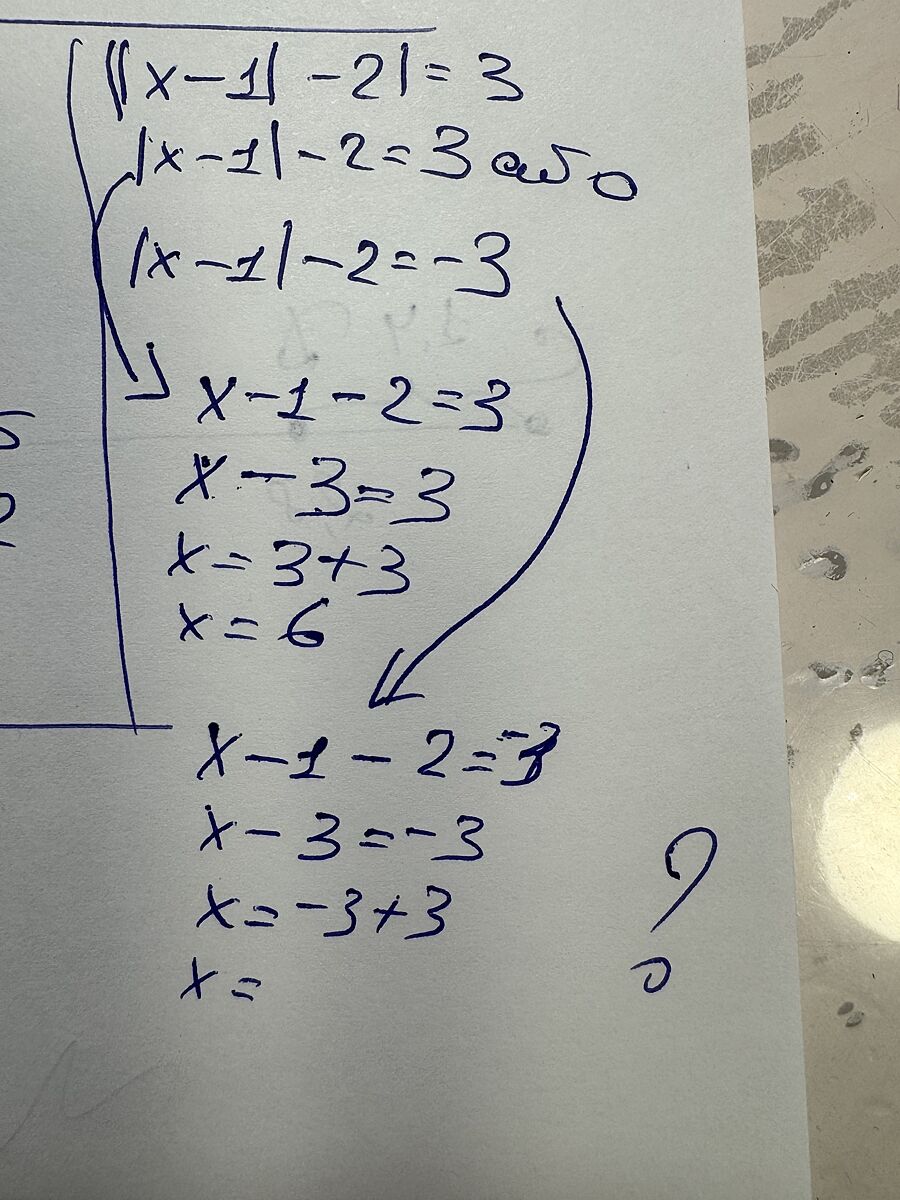 ||x-1|-2|=3
|x-1|-2=3 або
|x-1|-2=-3
x-1-2=3
x-3=3
x=3+3
x=6
x-1-2=-3
x-3=-3
x=-3+3
x=
?